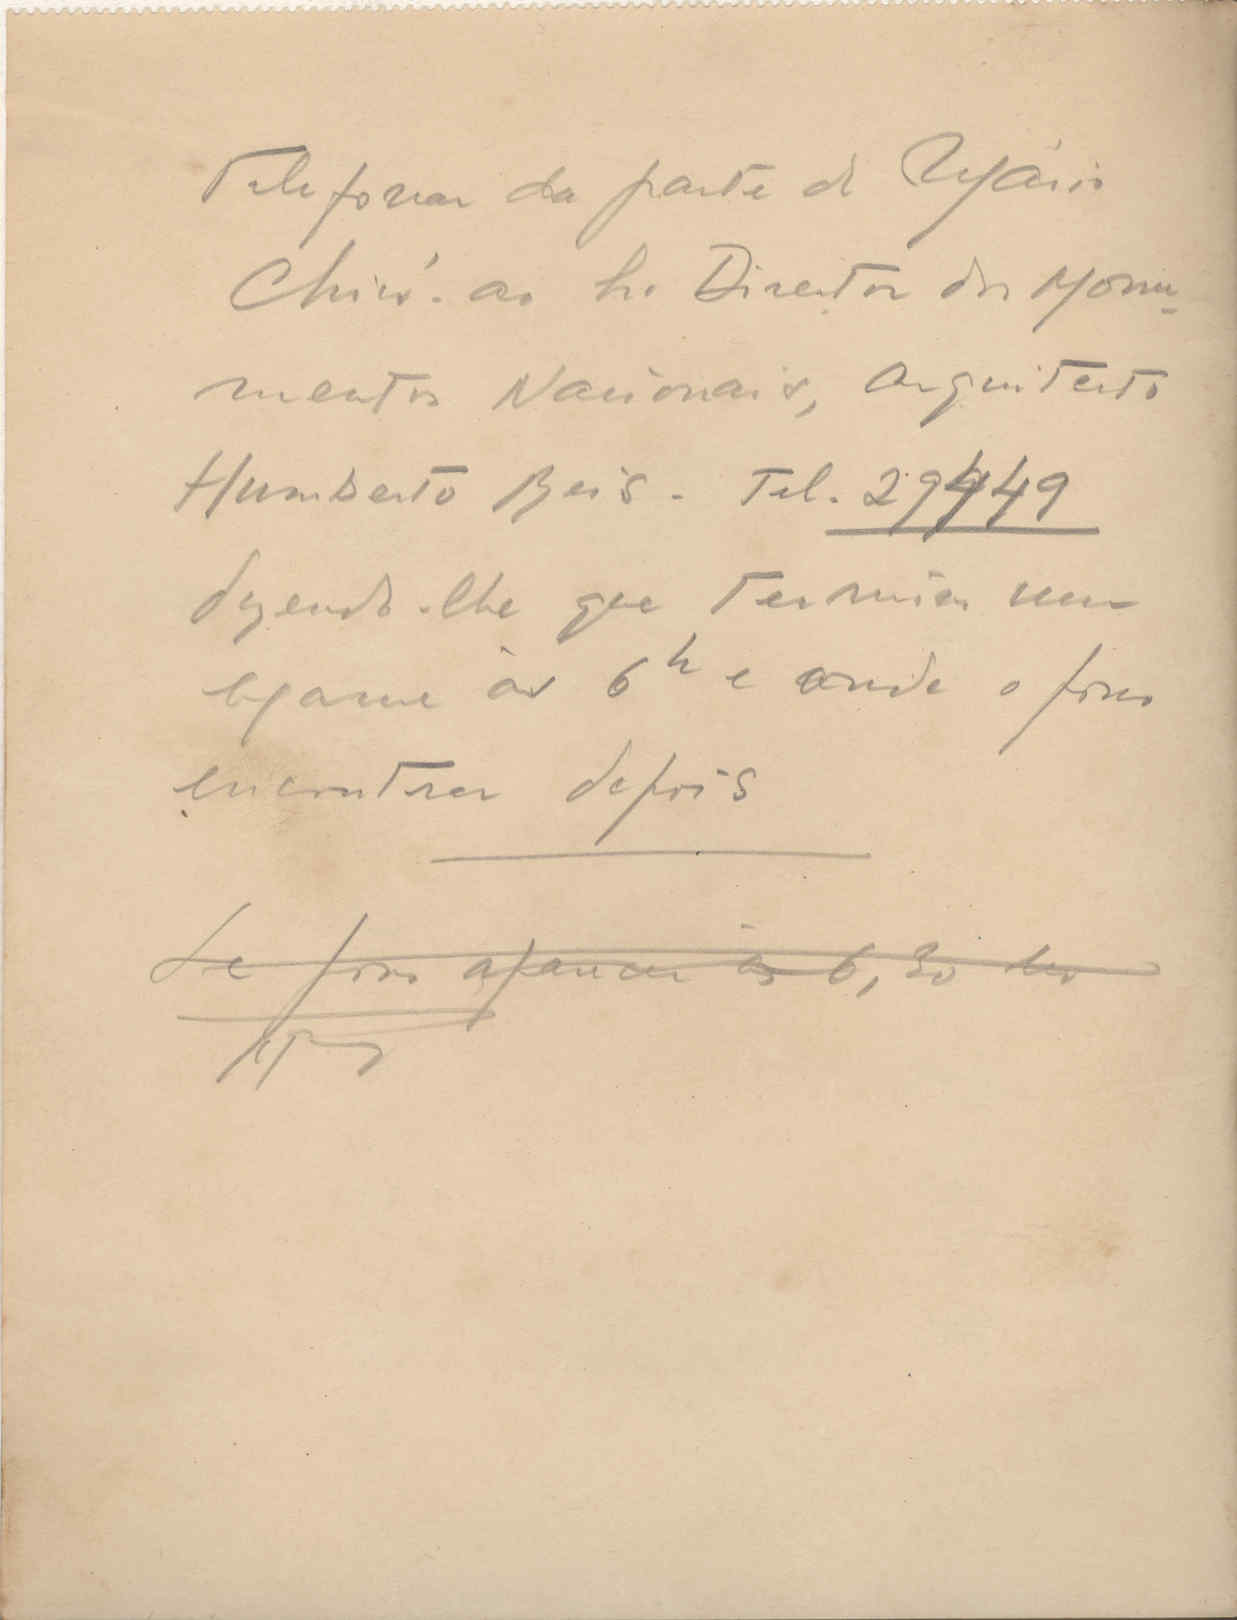 Telefonar da parte de Mário
Chicó. ao Sr. Director dos Monu-
mentos Nacionais, Arquitecto
Humberto Reis. Tel. 29449
dizendo-lhe que termina um
exame às 6h e onde o posso
encontrar depois
Se posso aparecer às 6,30 ou